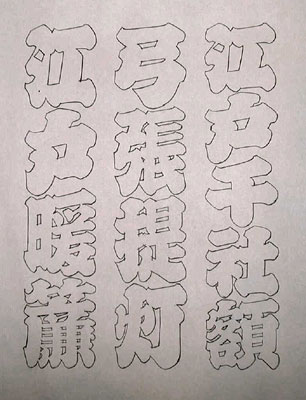 江戸千社額
弓張提灯
江戸暖簾